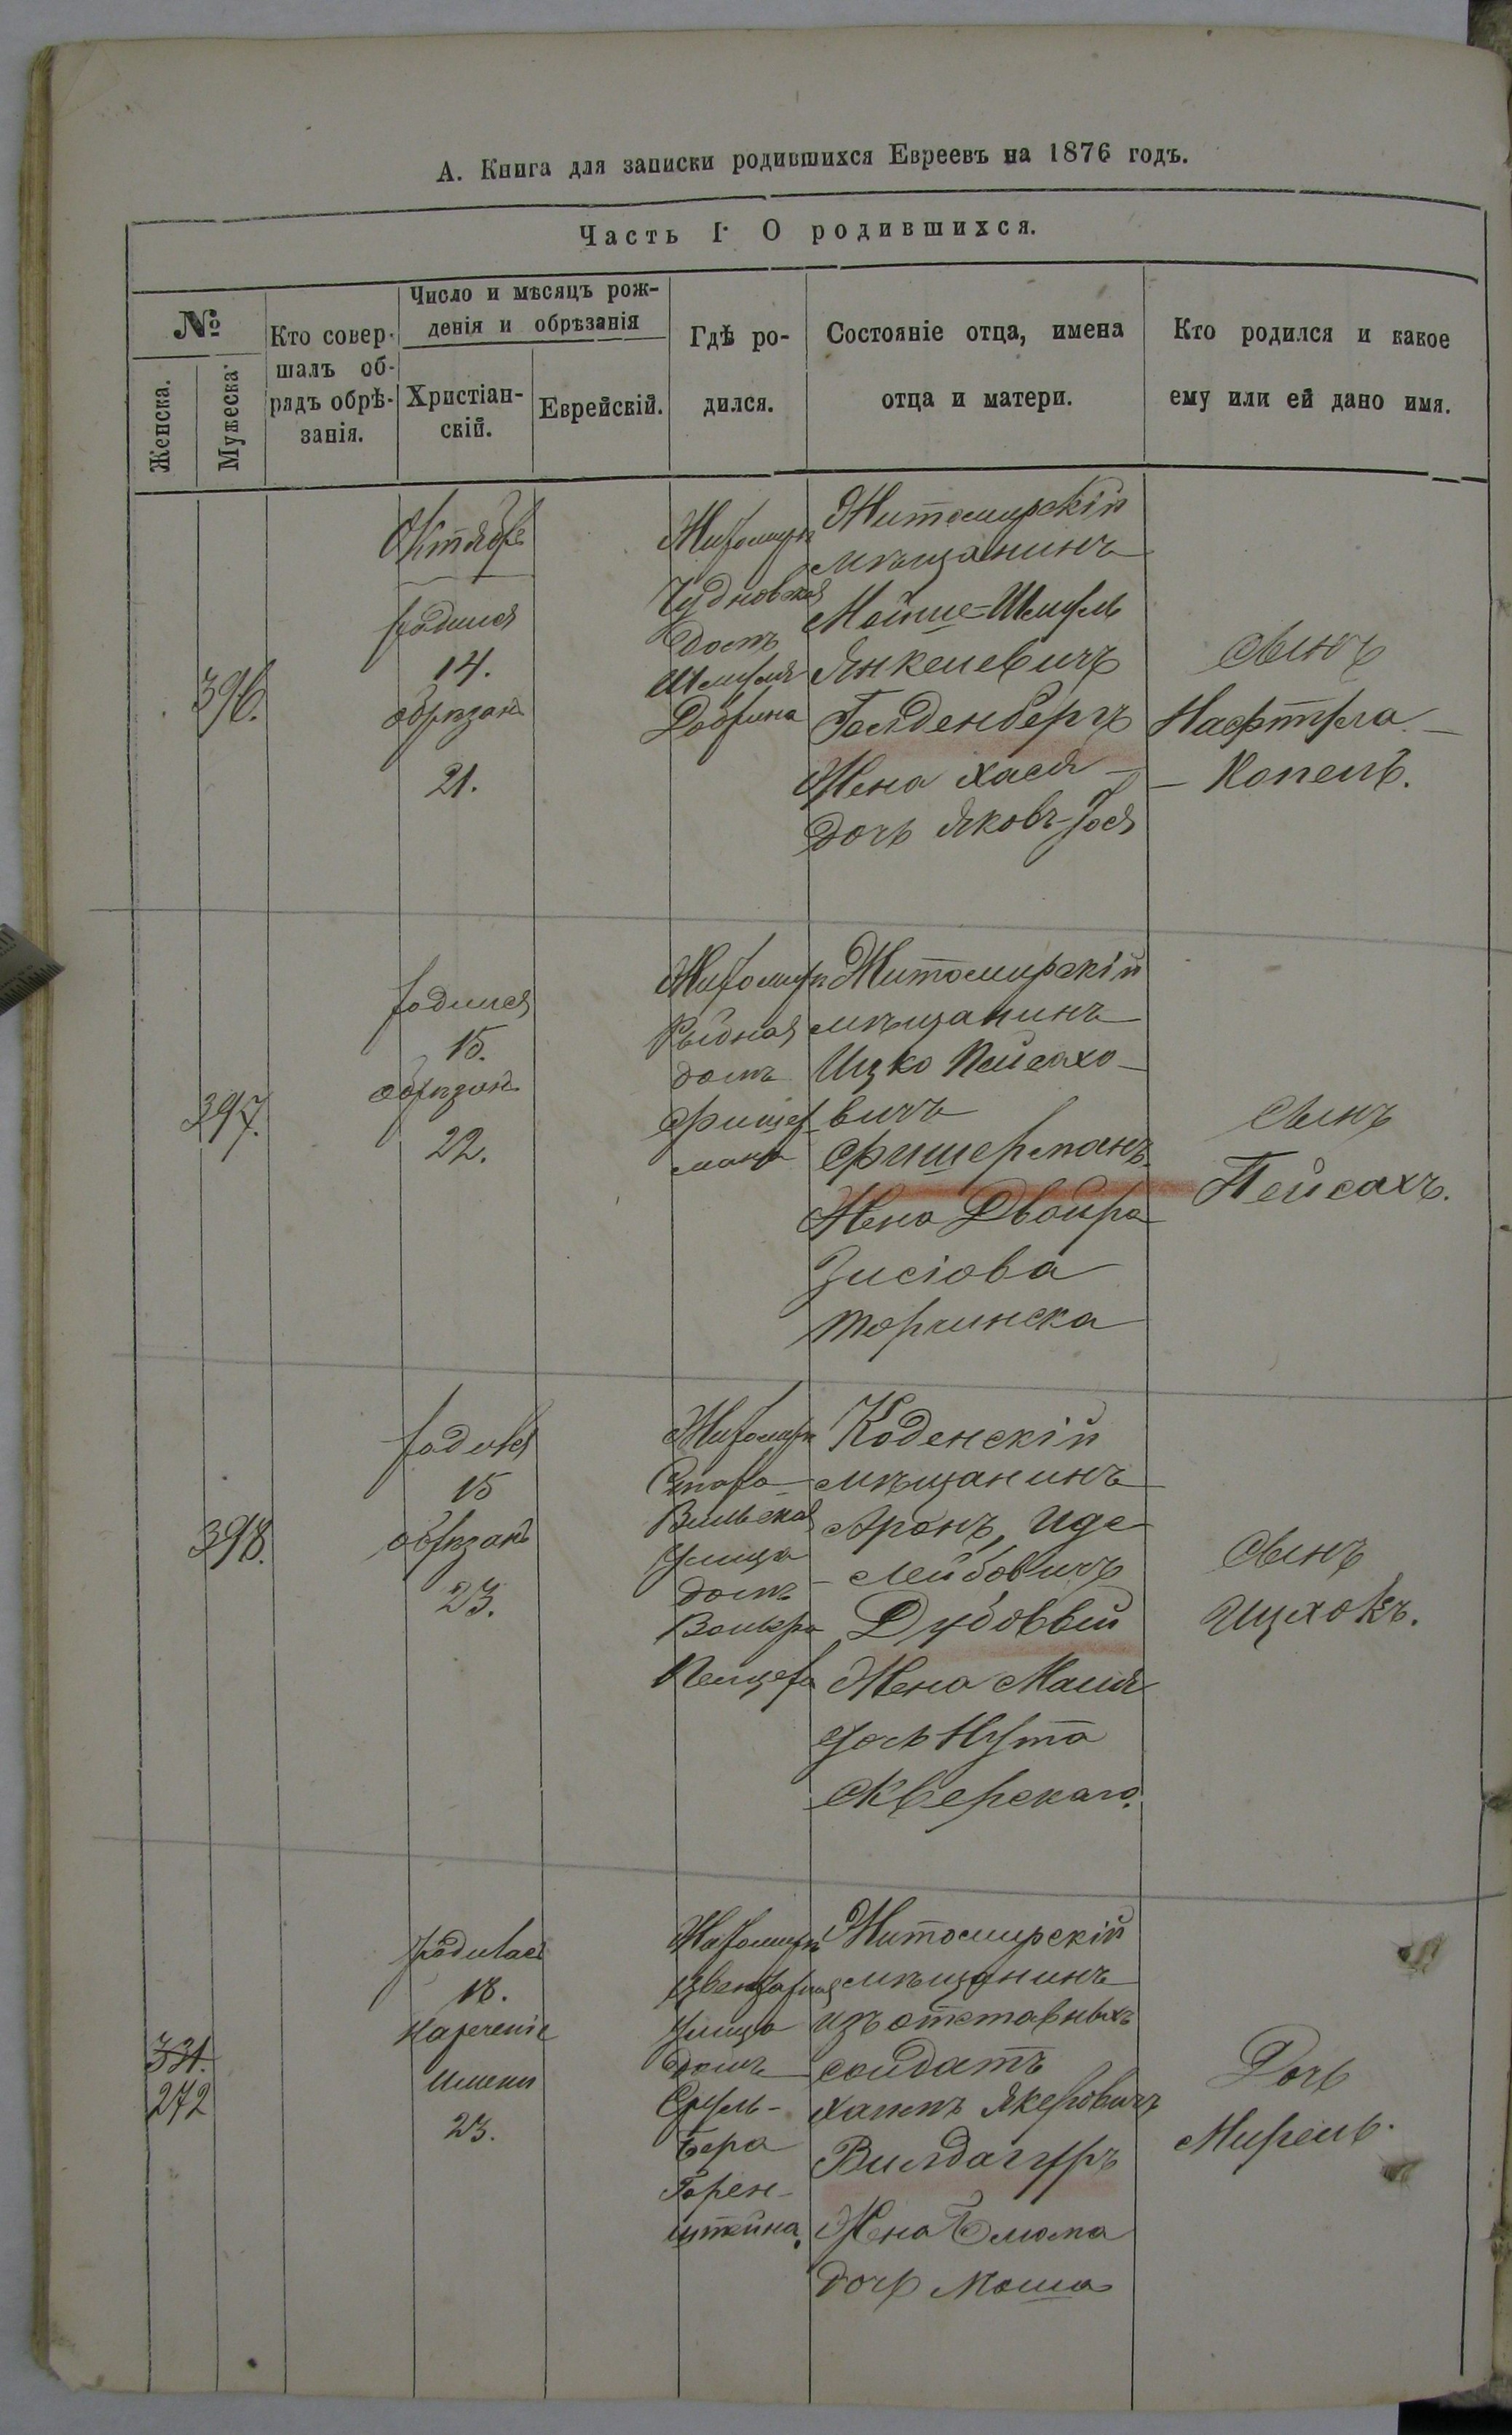 А. Книга для записки родившихся Евреевъ на 1876 годъ.
Часть I О родившихся.
№
Женска.
Мужеска
Кто совер-
шалъ об-
рядъ обрѣ-
занія.
Число и мѣсяцъ рож-
денія и обрѣзанія
Христіан-
скій.
Еврейскій.
Гдѣ ро-
дился.
Состояніе отца, имена
отца и матери.
Кто родился и какое
ему или ей дано имя.
396.
Октябрь
родился
14.
обрѣзанъ
21.
Житомиръ
Чудновская
домъ
Шмуля
Добрина
Житомирскій
мѣщанинъ
Мойше-Шмуль
Янкелевичъ
Голденбергъ
Жена Хася
дочь Яковъ-Іося
сынъ
Нафтула-
-Копель.
397.
родился
15.
обрѣзанъ
22.
Житомиръ
Рыбная
домъ
Фишер
мана
Житомирскій
мѣщанинъ
Ицко Пейсахо-
вичъ
Фишерманъ
Жена Двойра
Зисіова
Торчинска
сынъ
Пейсахъ.
398.
родился
15
обрѣзанъ
23.
Житомиръ
Старо-
Вильская
улица
домъ
Пельцера
Коденскій
мѣщанинъ
Аронъ, Иде-
-Лейбовичъ
Дубоввый
Жена Маля
дочь Нута
Скверскаго.
сынъ
Ицхокъ.
331.
272
родилась
18.
нареченіе
имени
23.
Житомиръ
улица
домъ
Сруль-
Бера
Горен-
штейна.
Житомирскій
мѣщанинъ
изъ отставныхъ
солдатъ
Хаимъ Якеровичъ
Вилдаггуръ
Жена Блюма
дочь Моша
Дочь
Мирель.